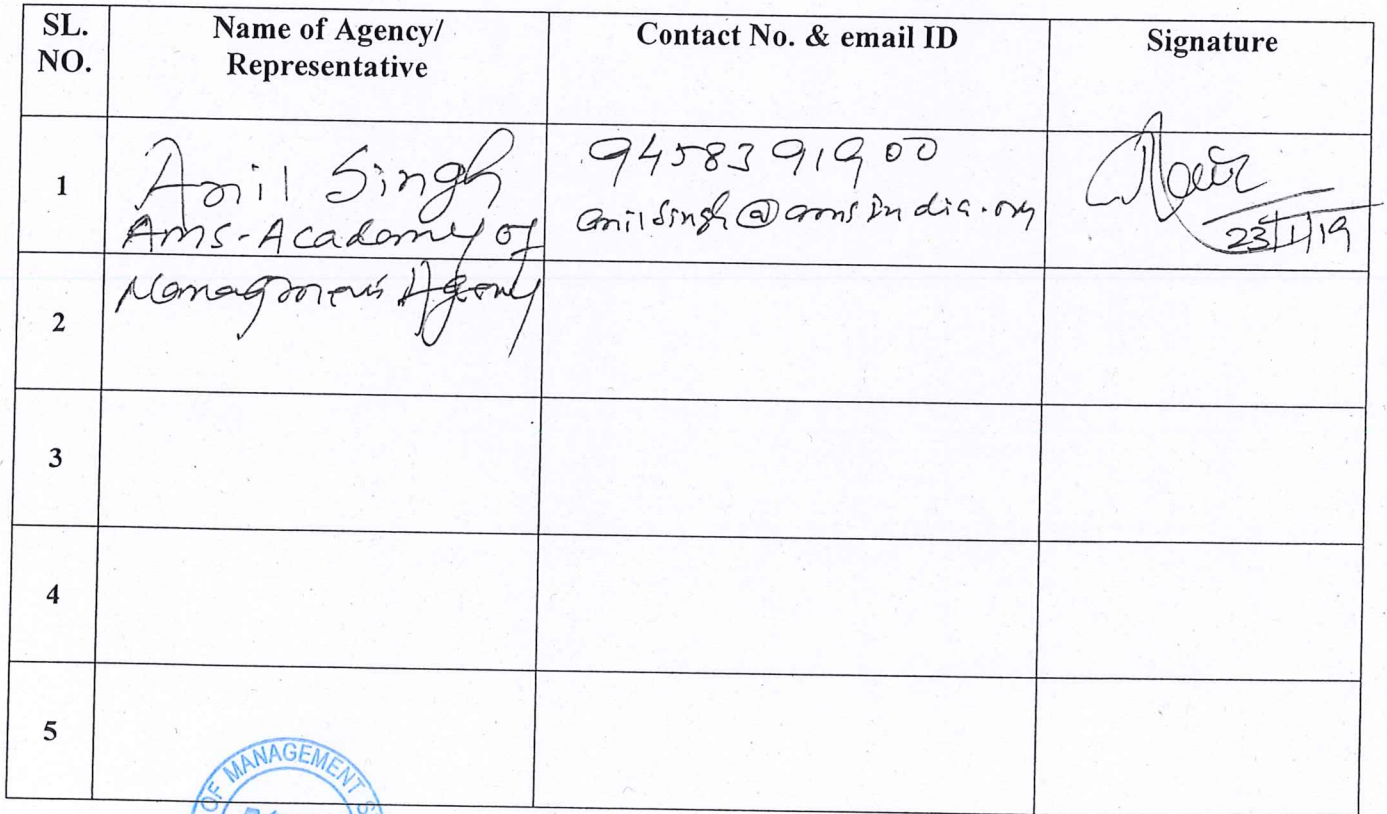 SL. NO.
Name of Agency/
Representative
Contact No. & email ID
Signature
1
Anil Singh
Ams-Academy of
9458391900
anilsingh@amsindia.org
23/1/19
2
3
4
5
OF MANAGEMENT S